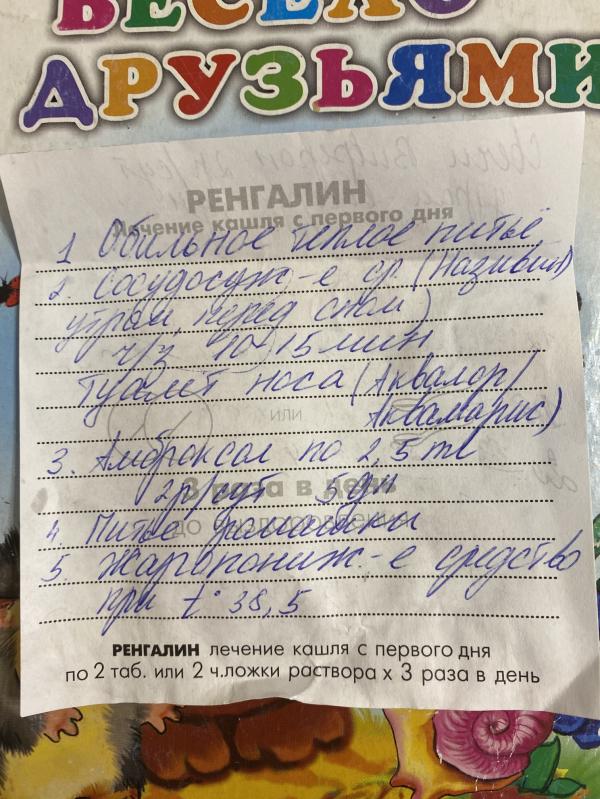 ВЕСЕЛО
ДРУЗЬЯМИ
свечи Виферон 2р/сут
РЕНГАЛИН
Лечение кашля с первого дня
1 Обильное теплое питьё
2. Сосудосуж-е ср. (Називин)
утром, перед сном)
ч/з 10-15 мин
туалет носа (Аквалор/
или
Аквамарис)
3. Амброксол по 2,5 ml
3 раза в день
2р/сут 5 дн
4. Питьё ромашки
5. Жаропониж-е средство
при t° 38,5
РЕНГАЛИН лечение кашля с первого дня
по 2 таб. или 2 ч.ложки раствора х 3 раза в день